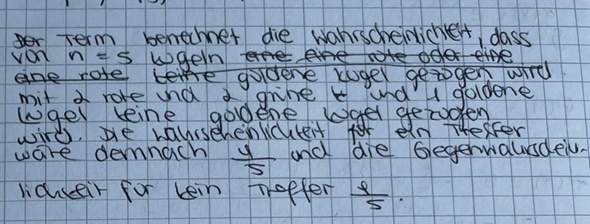 Der Term berechnet die Wahrscheinlichkeit, dass
von n = 5 Kugeln eine eine rote oder eine
eine rote keine goldene Kugel gezogen wird
mit 2 rote und 2 grüne und 1 goldene
Kugel keine goldene Kugel gezogen
wird. Die Wahrscheinlichkeit für ein Treffer
wäre demnach 4/5 und die Gegenwahrschein-
lichkeit für kein Treffer